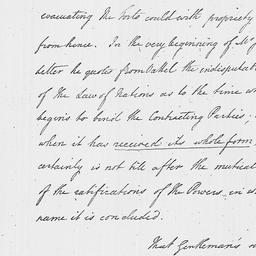 evacuating the Posts could with propriety
from hence. In the very beginning of Mr
letter he quotes from Vattel the indisputable
of the Law of Nations as to the time w
begins to bind the Contracting Parties,
when it has received its whole form,
certainly is not till after the mutual
of the ratifications of the Powers, in w
name it is concluded.
That Gentleman's